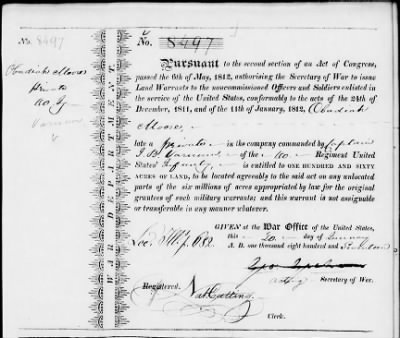 No. 8497
Obadiah Moores
Private
40. Reg.
Varnum
WAR DEPARTMENT.
No. 8497
Pursuant to the second section of an Act of Congress,
passed the 6th of May, 1812, authorising the Secretary of War to issue
Land Warrants to the noncommissioned Officers and Soldiers enlisted
in the service of the United States, conformably to the acts of the 24th of
December, 1811, and of the 11th of January, 1812, Obadiah
Moores
late a Private in the company commanded by Captain
J. B. Varnum of the 40. Regiment United
States' Infantry is entitled to ONE HUNDRED AND SIXTY
ACRES OF LAND, to be located agreeably to the said act on any unlocated
parts of the six millions of acres appropriated by law for the original
grantees of such military warrants; and this warrant is not assignable
or transferable in any manner whatever.
GIVEN at the War Office of the United States,
this 20. day of January
A. D. one thousand eight hundred and
Secretary of War.
Registered. Nat. Cutting
Clerk.